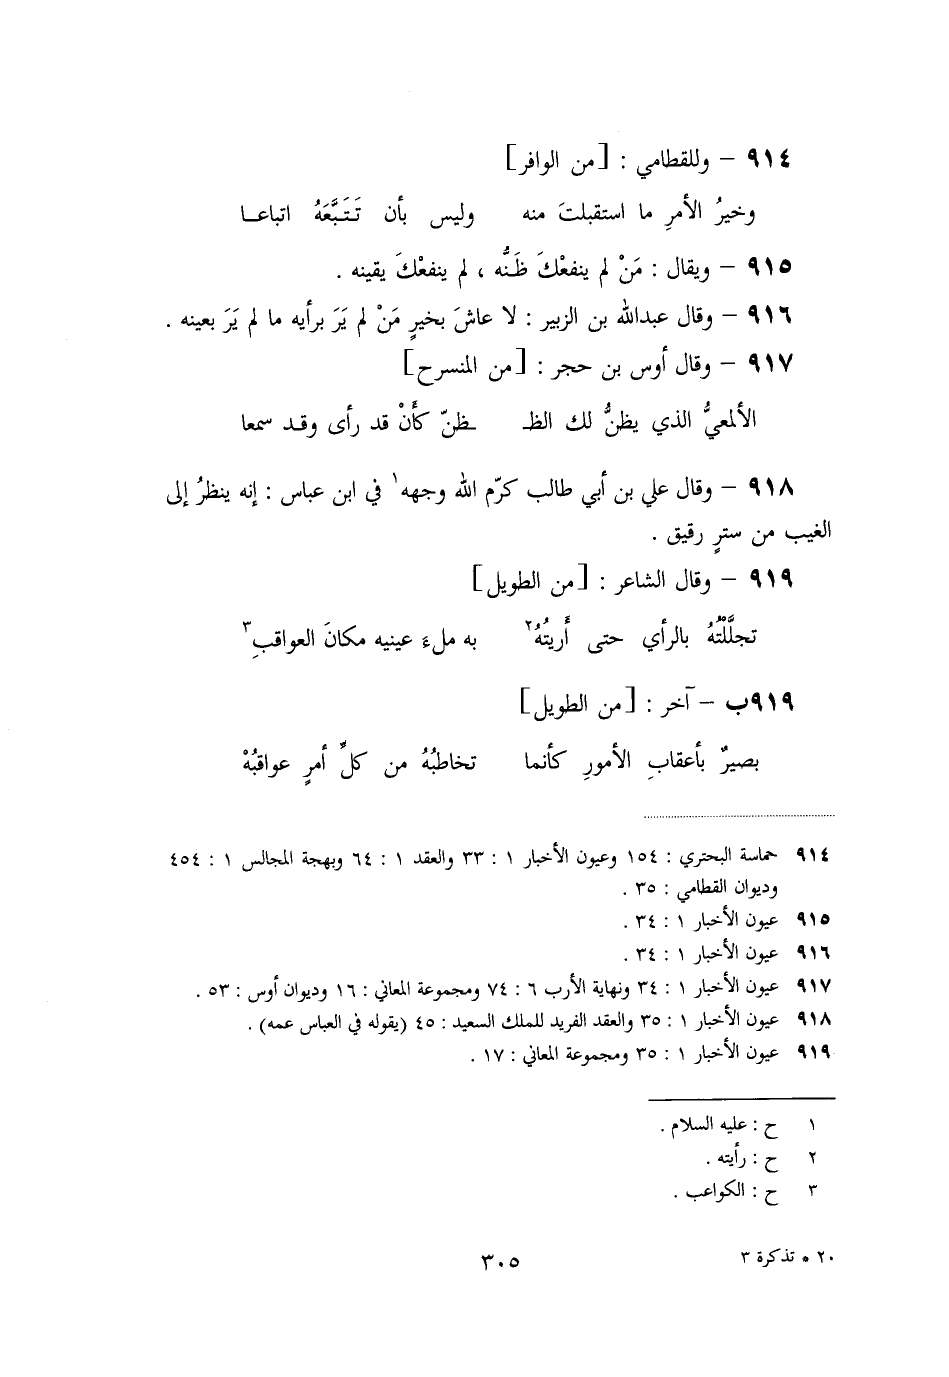 ٩١٤ – وللقطامي : [من الوافر]
وخيرُ الأمرِ ما استقبلتَ منه وليس بأن تَتَبَّعَهُ اتباعـا
٩١٥ – ويقال : مَنْ لم ينفعْكَ ظَنُّه ، لم ينفعْكَ يقينه .
٩١٦ – وقال عبدالله بن الزبير : لا عاشَ بخيرٍ مَنْ لم يَرَ برأيه ما لم يَرَ بعينه .
٩١٧ – وقال أوس بن حجر : [من المنسرح]
الألمعيُّ الذي يظنُّ لك الظـ ـظنّ كأَنْ قد رأى وقـد سمعا
٩١٨ – وقال علي بن أبي طالب كرّم الله وجهه١ في ابن عباس : إنه ينظرُ إلى
الغيب من سترٍ رقيق .
٩١٩ – وقال الشاعر : [من الطويل]
تجلَّلْتُهُ بالرأي حتى أَريتُهُ٢ به ملءَ عينيه مكانَ العواقبِ٣
٩١٩ب – آخر : [من الطويل]
بصيرٌ بأعقابِ الأمورِ كأنما تخاطبُهُ من كلِّ أمرٍ عواقبُهْ
٩١٤ حماسة البحتري : ١٥٤ وعيون الأخبار ١ : ٣٣ والعقد ١ : ٦٤ وبهجة المجالس ١ : ٤٥٤
وديوان القطامي : ٣٥ .
٩١٥ عيون الأخبار ١ : ٣٤ .
٩١٦ عيون الأخبار ١ : ٣٤ .
٩١٧ عيون الأخبار ١ : ٣٤ ونهاية الأرب ٦ : ٧٤ ومجموعة المعاني : ١٦ وديوان أوس : ٥٣ .
٩١٨ عيون الأخبار ١ : ٣٥ والعقد الفريد للملك السعيد : ٤٥ (يقوله في العباس عمه) .
٩١٩ عيون الأخبار ١ : ٣٥ ومجموعة المعاني : ١٧ .
١ ح : عليه السلام .
٢ ح : رأيته .
٣ ح : الكواعب .
٢٠ * تذكرة ٣ ٣٠٥